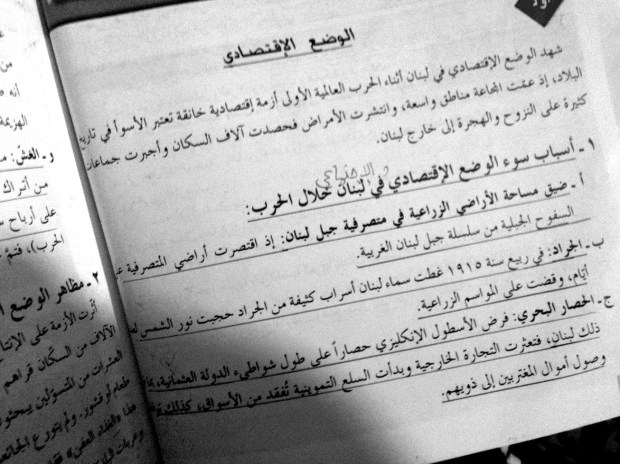 الوضع الإقتصادي
شهد الوضع الإقتصادي في لبنان أثناء الحرب العالمية الأولى أزمة إقتصادية خانقة تعتبر الأسوأ في تاريخ
البلاد، إذ عمّت المجاعة مناطق واسعة، وانتشرت الأمراض فحصدت آلاف السكان وأجبرت جماعات
كثيرة على النزوح والهجرة إلى خارج لبنان.
والاجتماعي
١ - أسباب سوء الوضع الإقتصادي في لبنان خلال الحرب:
أ - ضيق مساحة الأراضي الزراعية في متصرفية جبل لبنان: إذ اقتصرت أراضي المتصرفية
السفوح الجبلية من سلسلة جبل لبنان الغربية.
ب - الجراد: في ربيع سنة ١٩١٥ غطت سماء لبنان أسراب كثيفة من الجراد حجبت نور الشمس
أيّام، وقضت على المواسم الزراعية.
ج - الحصار البحري: فرض الأسطول الإنكليزي حصاراً على طول شواطىء الدولة العثمانية،
ذلك لبنان، فتعثرت التجارة الخارجية وبدأت السلع التموينية تُفقد من الأسواق، كذلك
وصول أموال المغتربين إلى ذويهم.
من
أنه
الهزيمة
و - الغش:
من أتراك
على أرباح
الحرب)، فتمّ
٢ - مظاهر الوضع
أثّرت الأزمة على الإنتا
الآلاف من السكان قراهم
العشرات من المتسوّلين يبحثون
طعام أو قشور. ولم يتورع